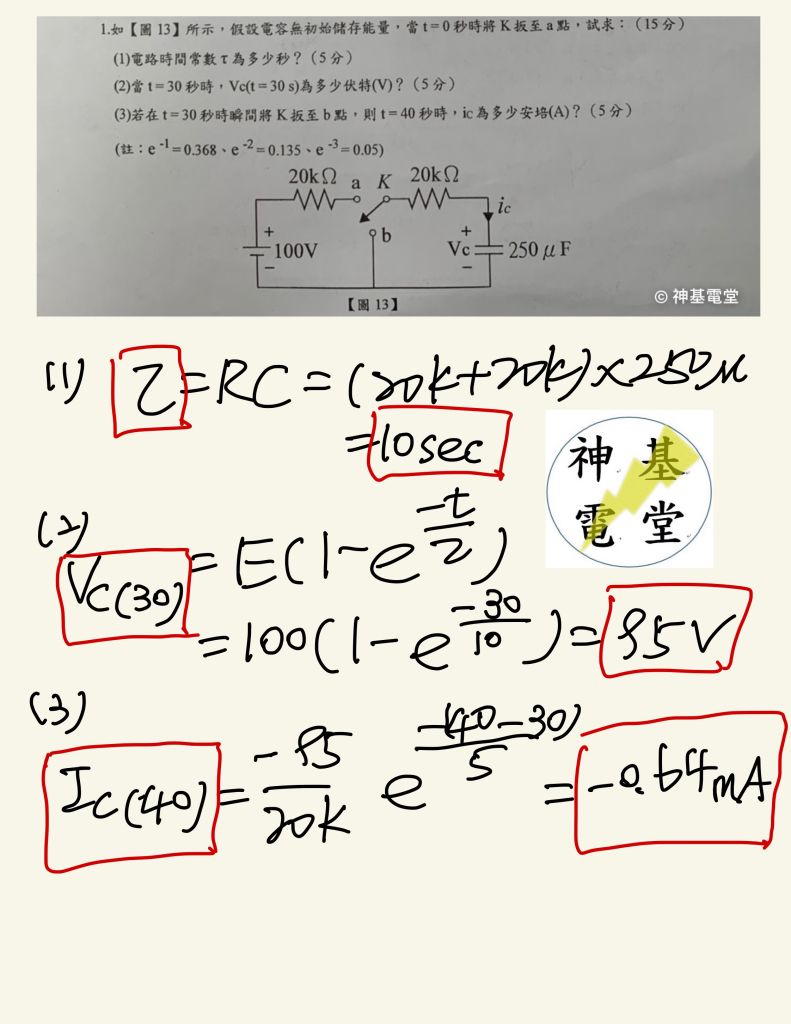 1.如【圖 13】所示，假設電容無初始儲存能量，當 t=0 秒時將 K 扳至 a 點，試求：（15 分）
(1)電路時間常數 τ 為多少秒？（5 分）
(2)當 t=30 秒時，Vc(t=30 s)為多少伏特(V)？（5 分）
(3)若在 t=30 秒時瞬間將 K 扳至 b 點，則 t=40 秒時，ic 為多少安培(A)？（5 分）
(註：e⁻¹=0.368、e⁻²=0.135、e⁻³=0.05)
20kΩ a K 20kΩ
ic
+ b +
100V Vc 250μF
− −
【圖 13】
© 神基電堂
(1) τ=RC=(20k+20k)×250μ
=10sec
神基
電堂
(2)
Vc(30) = E(1-e^(-t/τ))
=100(1-e^(-30/10))=95V
(3)
Ic(40) = -95/20k e^(-(40-30)/5) = -0.64mA